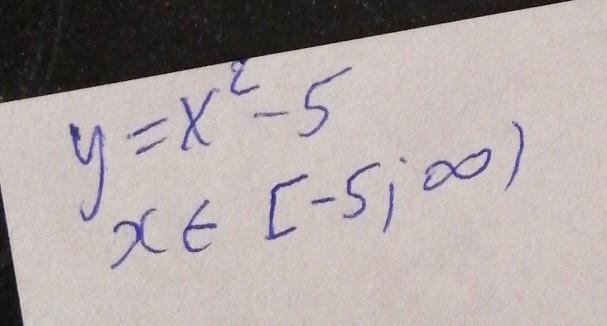 y=x²-5
x∈ [-5; ∞)